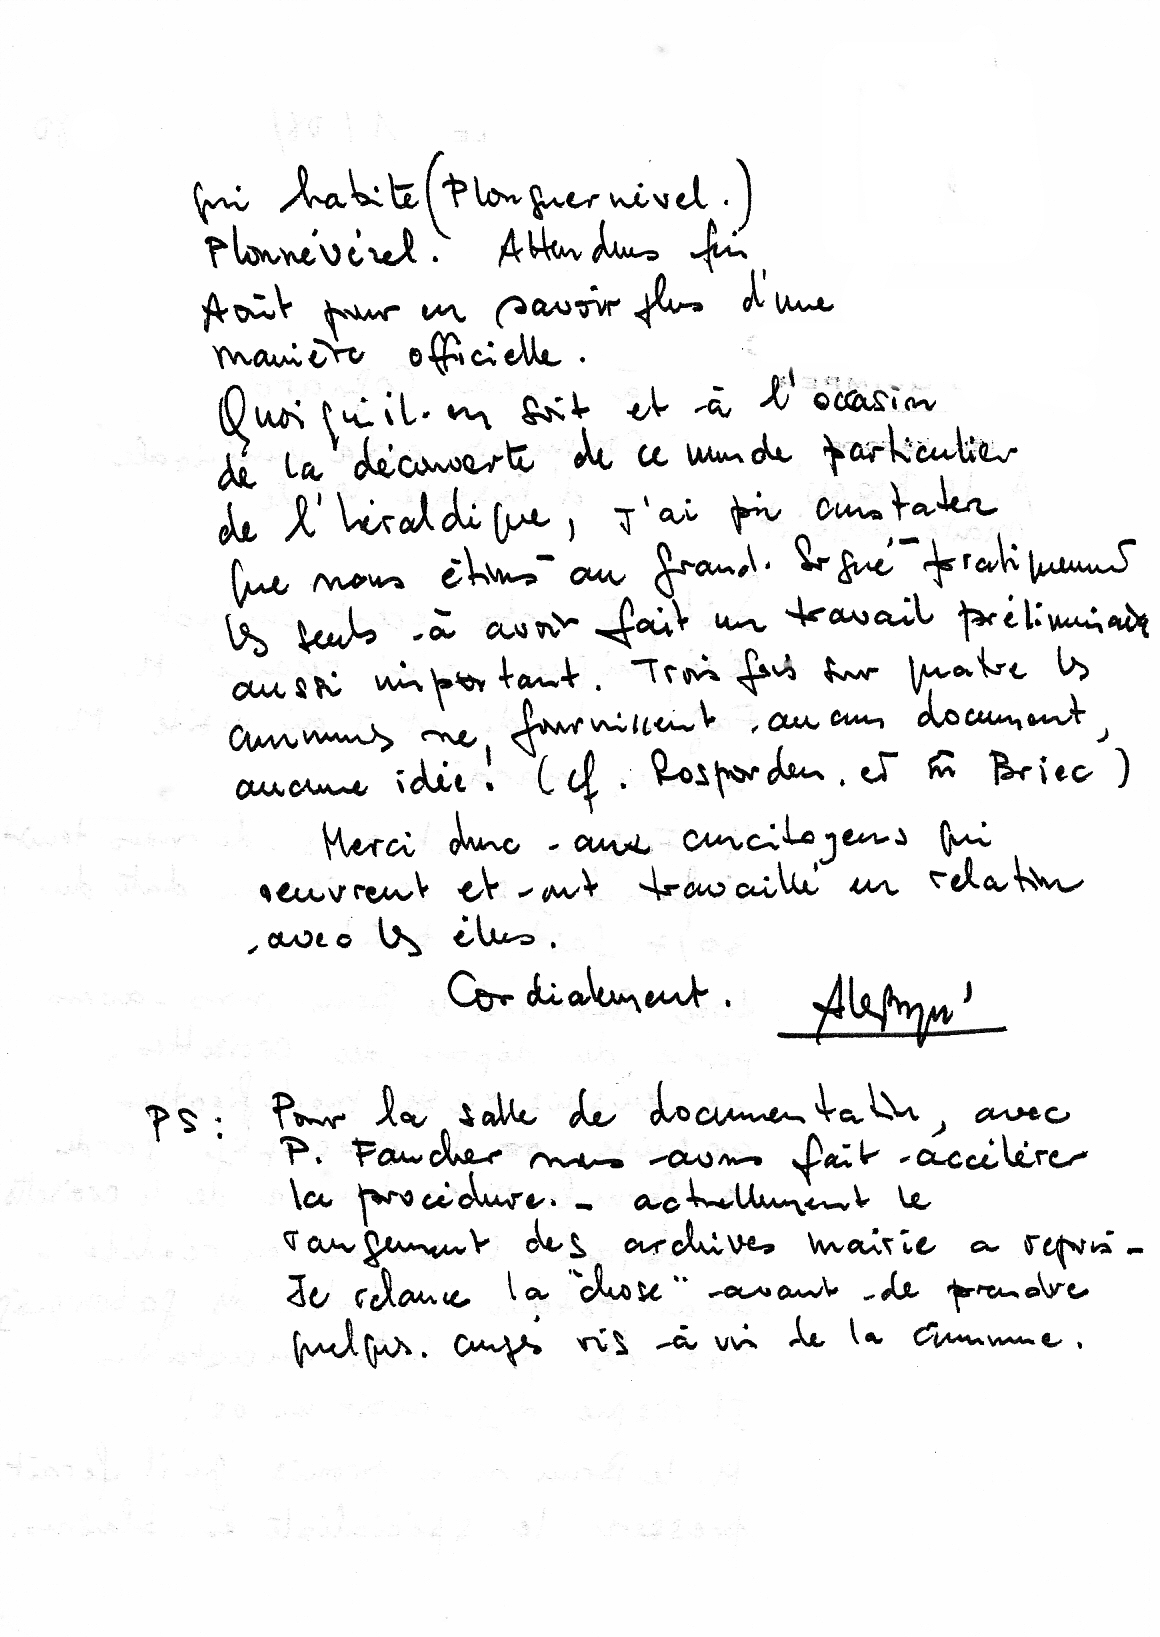 qui habite (Plonguernével.)
Plonnévézel. Attendons fin
Août pour en savoir plus d'une
manière officielle.
Quoiqu'il en soit et à l'occasion
de la découverte de ce monde particulier
de l'héraldique, j'ai pu constater
que nous étions au Grand. Ergué pratiquement
les seuls à avoir fait un travail préliminaire
aussi important. Trois fois sur quatre les
communes ne fournissent aucun document,
aucune idée! (cf. Rosporden. et m Briec)
Merci donc aux concitoyens qui
oeuvrent et ont travaillé en relation
avec les élus.
Cordialement.
PS: Pour la salle de documentation, avec
P. Faucher nous avons fait accélérer
la procédure. - actuellement le
rangement des archives mairie a repris -
Je relance la "chose" avant de prendre
quelques. congés vis à vis de la commune.